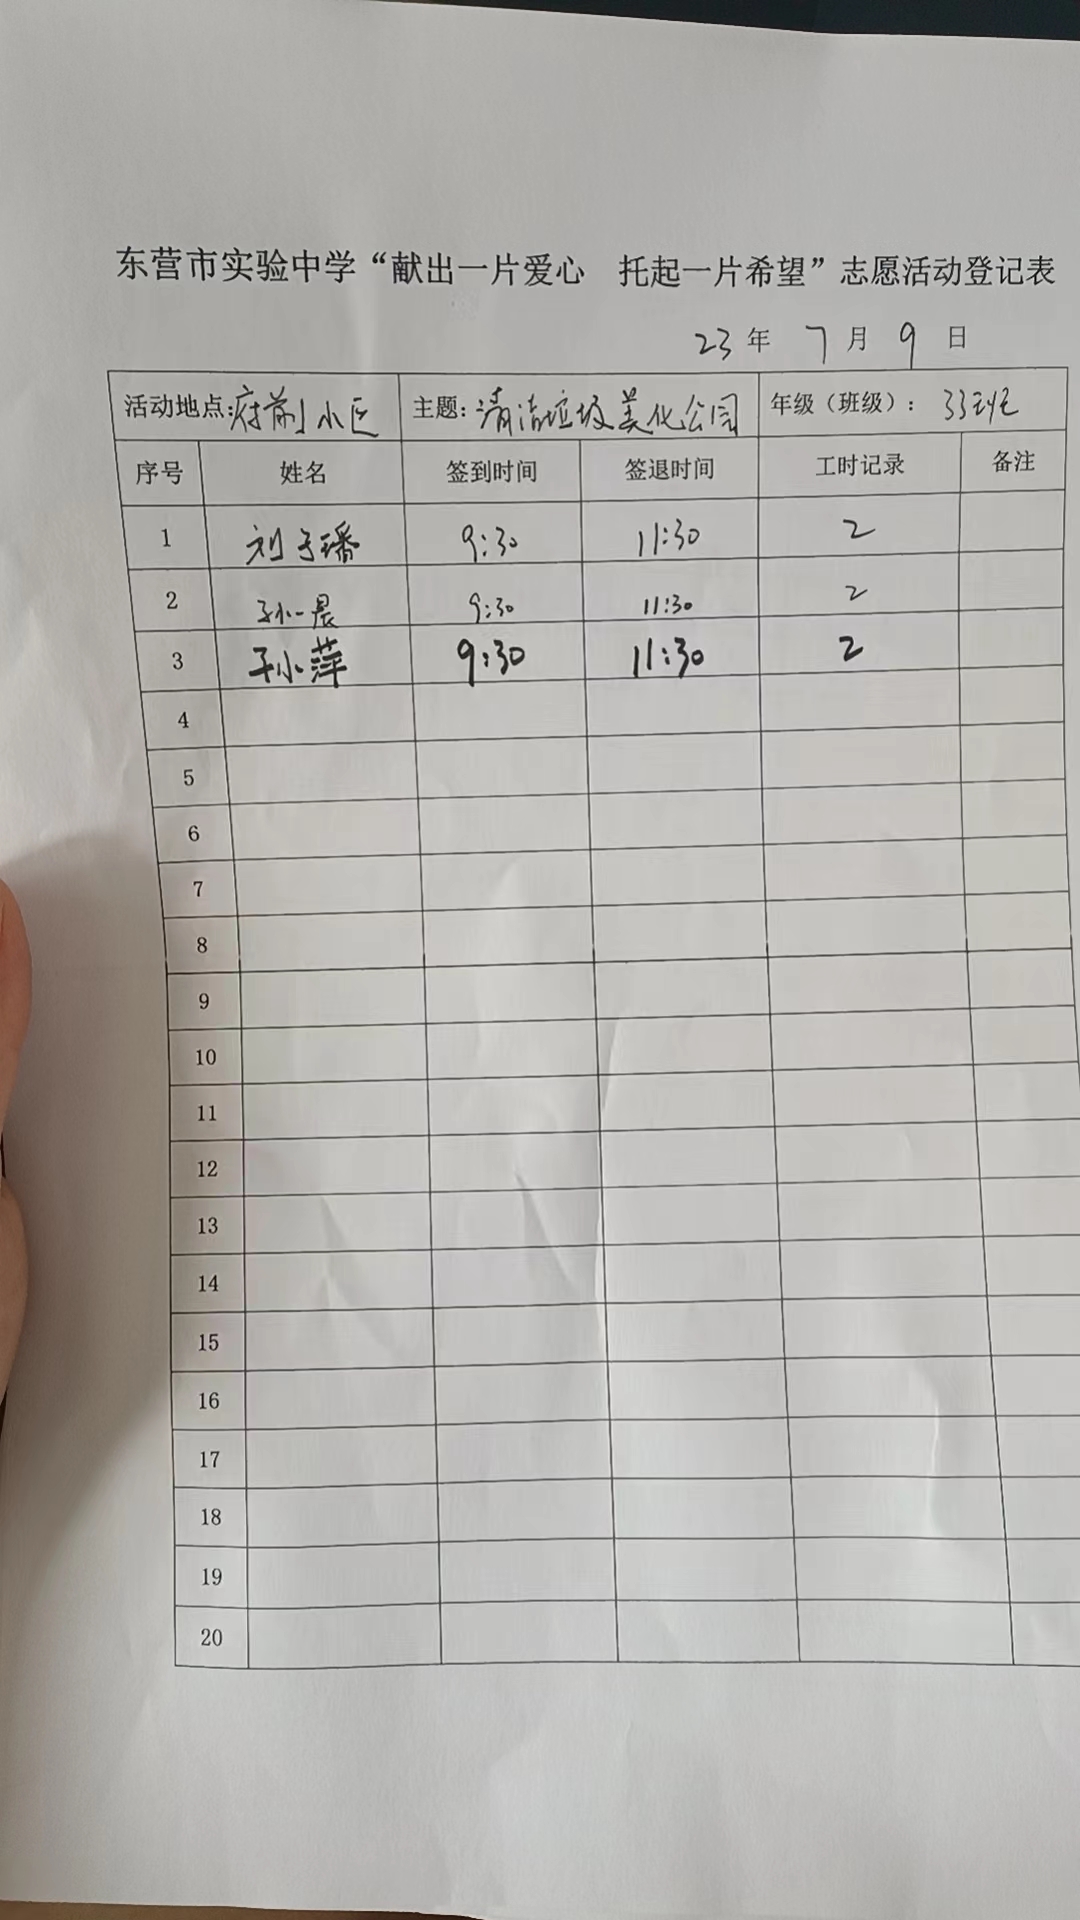 东营市实验中学“献出一片爱心 托起一片希望”志愿活动登记表
23年 7月 9日
活动地点:府前小区 主题:清洁垃圾美化公园 年级（班级）: 33
序号 姓名 签到时间 签退时间 工时记录 备注
1 刘子璠 9:30 11:30 2
2 孙一晨 9:30 11:30 2
3 孙小萍 9:30 11:30 2
4
5
6
7
8
9
10
11
12
13
14
15
16
17
18
19
20